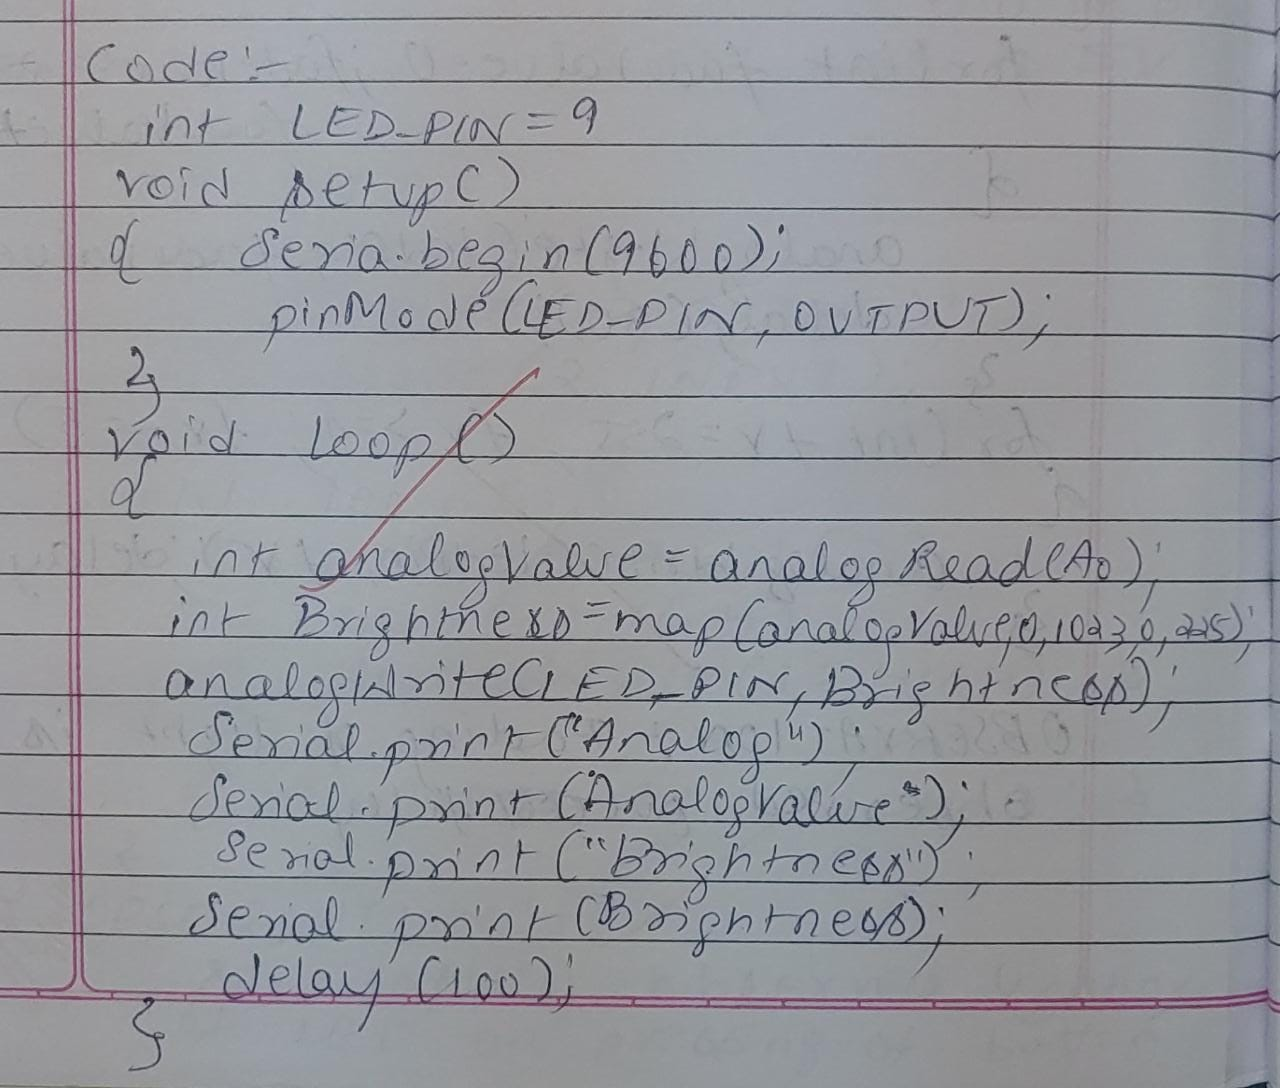 Code:-
int LED_PIN = 9
void setup()
{ Seria.begin(9600);
pinMode(LED_PIN, OUTPUT);
}
void Loop()
{
int analogValue = analogRead(A0);
int Brightness=map(analogValue,0,1023,0,225);
analogWrite(LED_PIN, Brightness);
Serial.print("Analog");
Serial.print(AnalogValue");
Serial.print("Brightness");
Serial.print(Brightness);
delay (100);
}